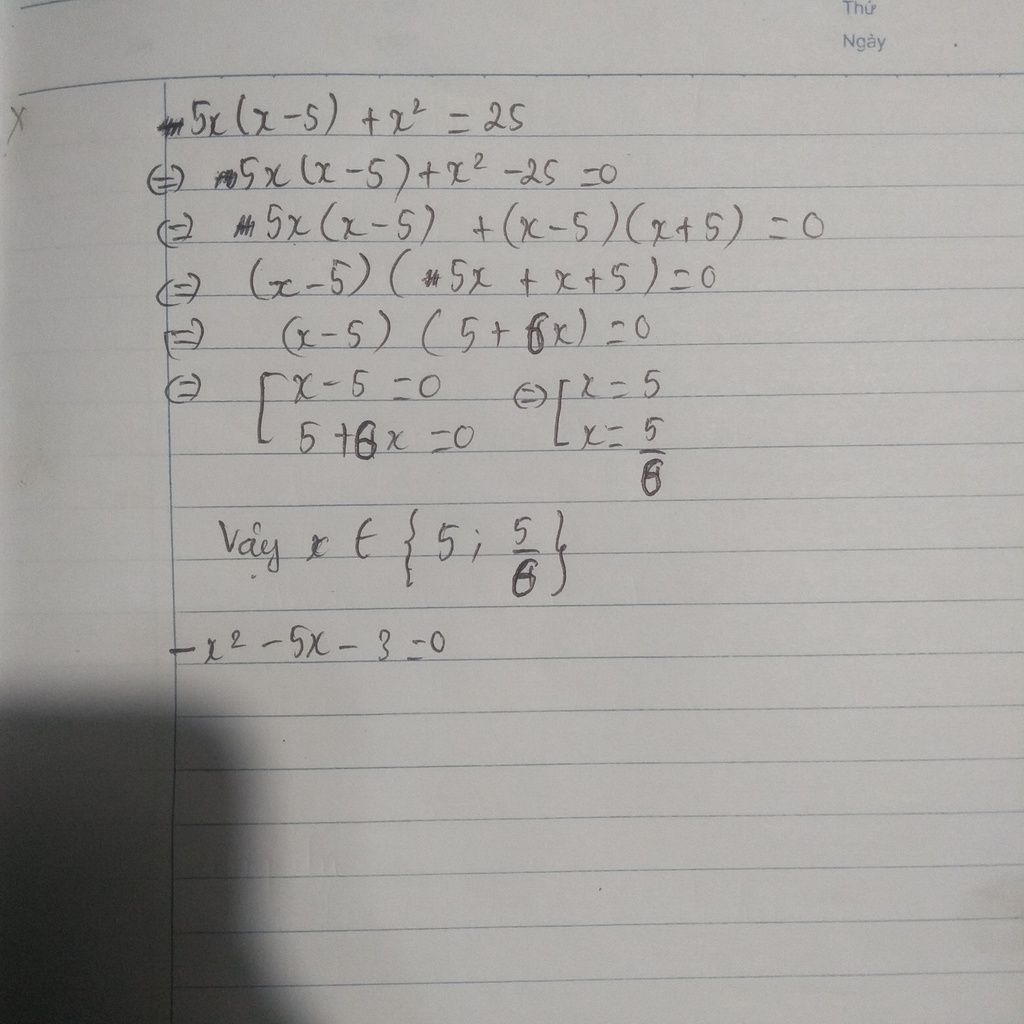 Thứ
Ngày
5x(x-5) + x² = 25
⇔ 5x(x-5) + x² - 25 = 0
⇔ 5x(x-5) + (x-5)(x+5) = 0
⇔ (x-5)(5x + x + 5) = 0
⇔ (x-5)(5 + 6x) = 0
⇔ [ x - 5 = 0 ⇔ [ x = 5
5 + 6x = 0 x = 5/6
Vậy x ∈ {5; 5/6}
-x² - 5x - 3 = 0